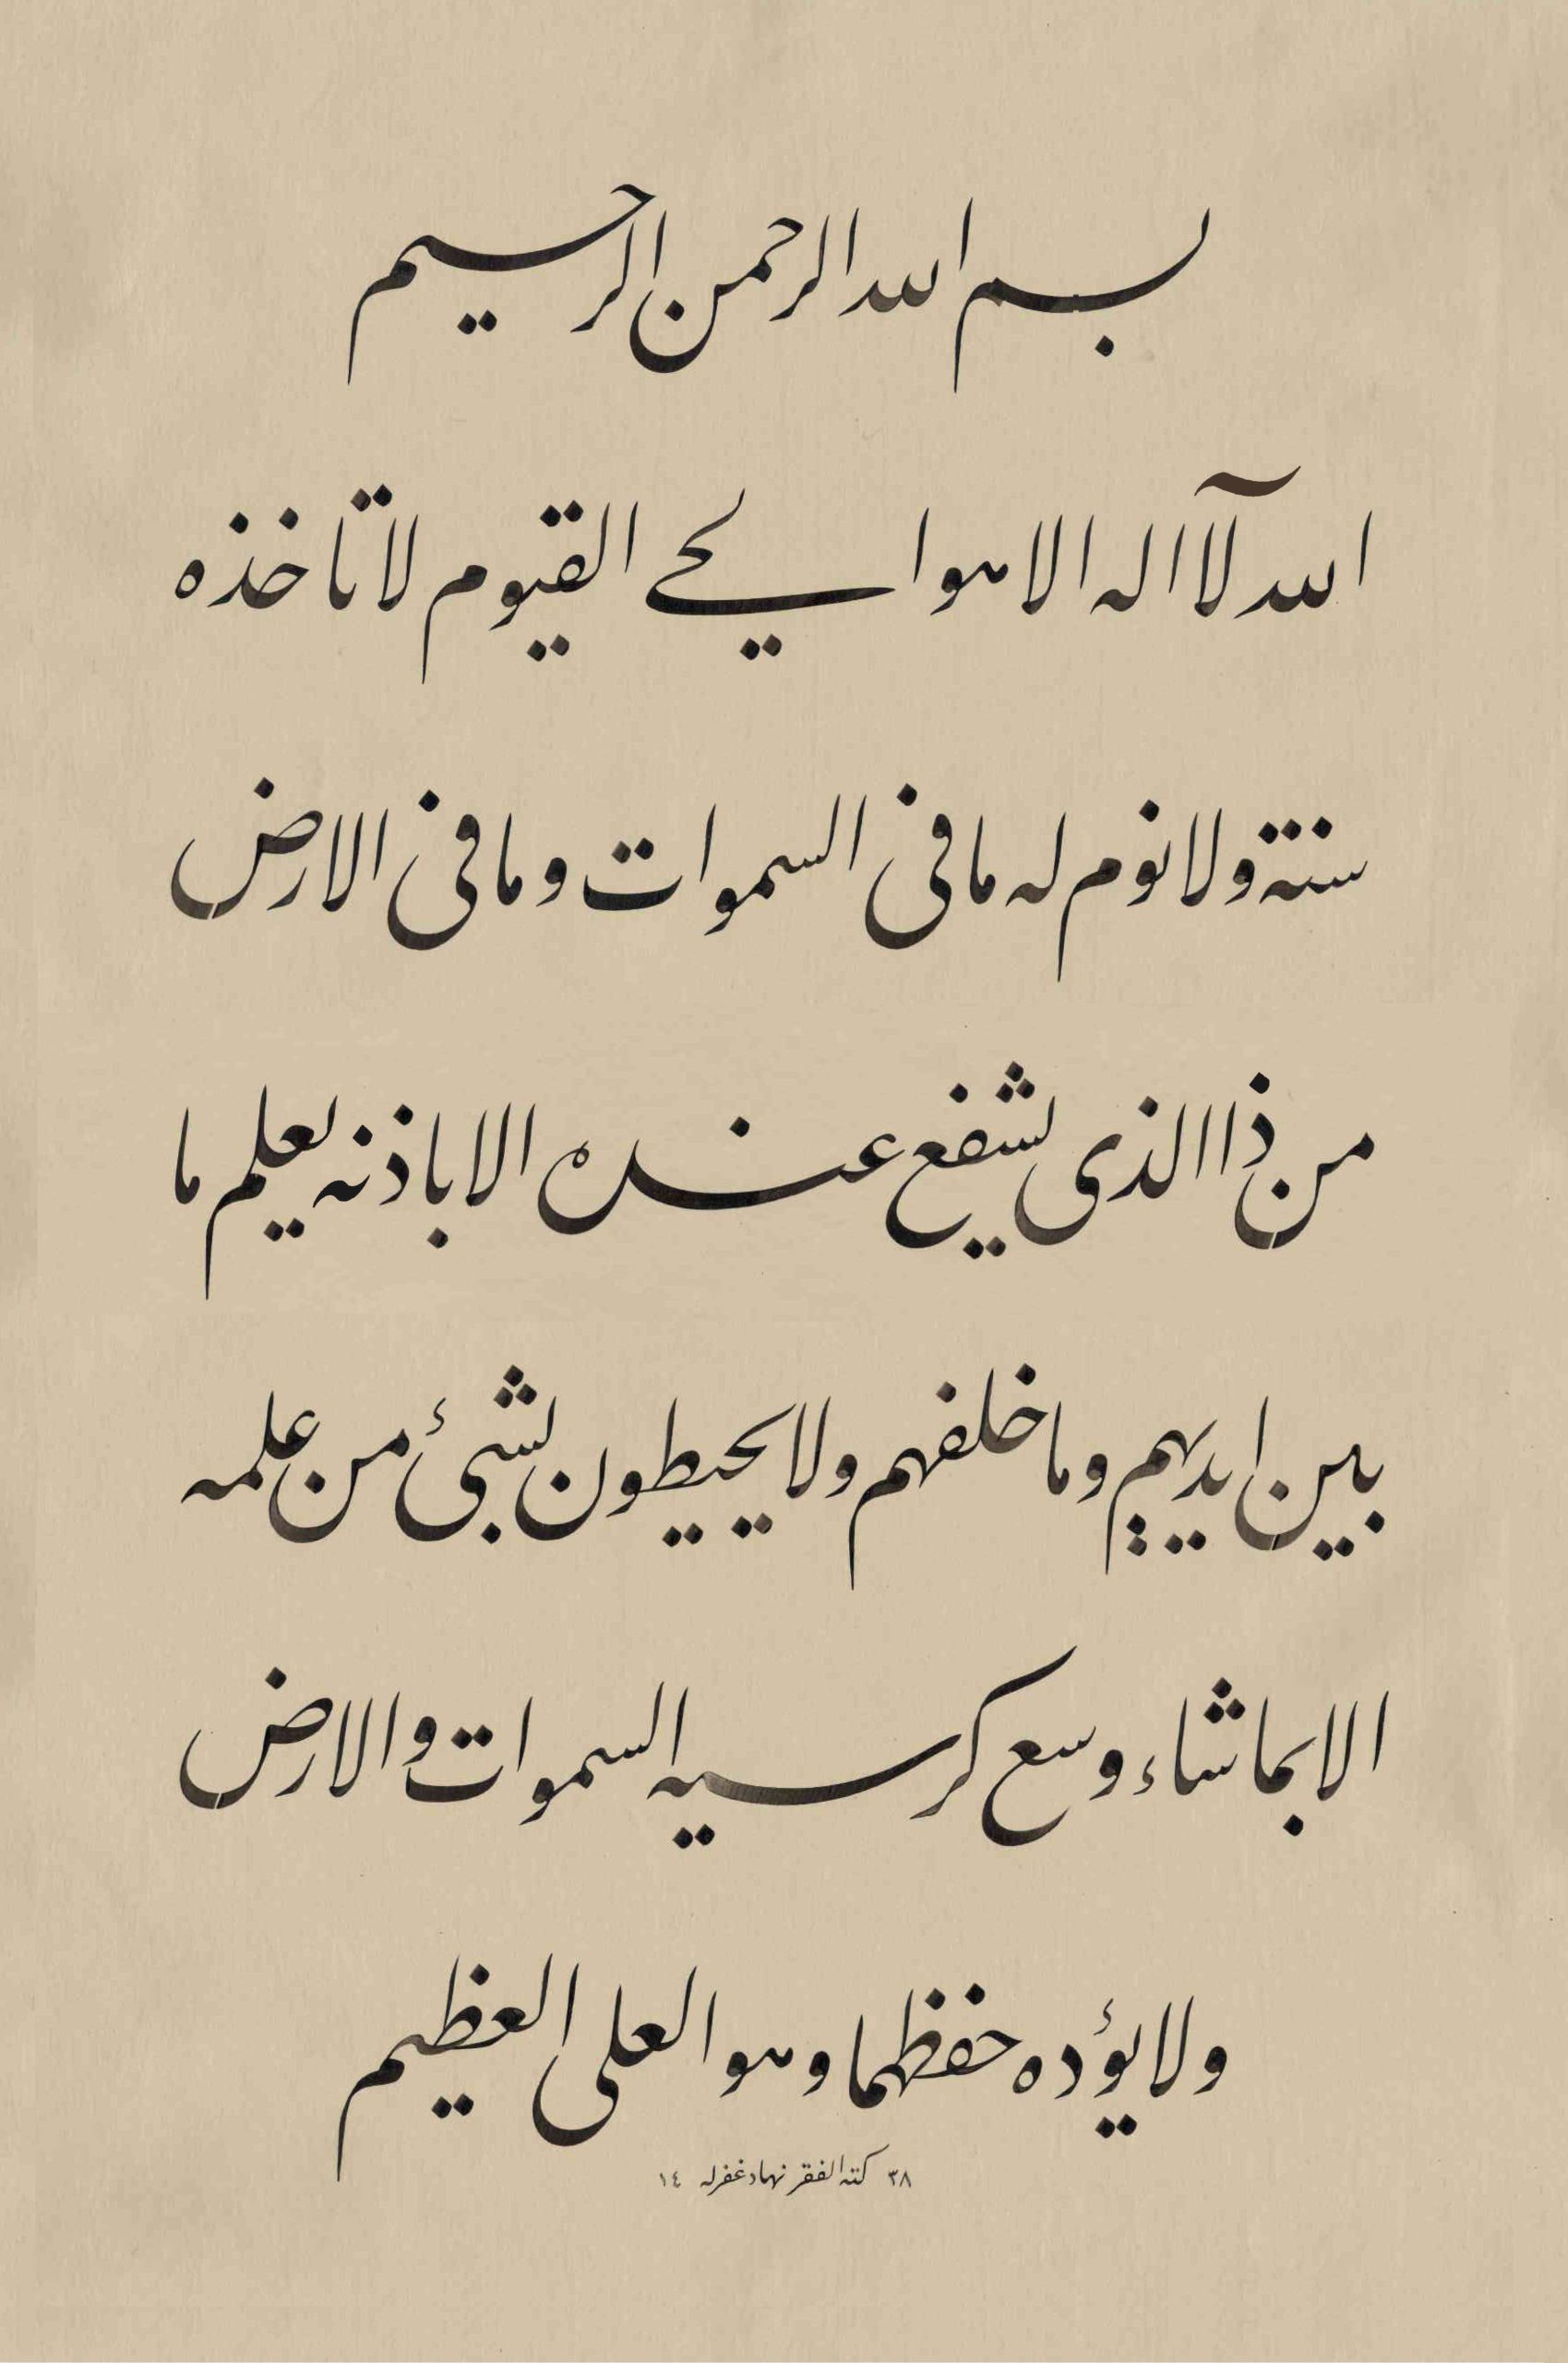 بسم الله الرحمن الرحيم
الله لآ اله الا هو الحي القيوم لا تاخذه
سنة ولا نوم له ما فى السموات وما فى الارض
من ذا الذى يشفع عنده الا باذنه يعلم ما
بين ايديهم وما خلفهم ولا يحيطون بشئ من علمه
الا بما شاء وسع كرسيه السموات والارض
ولا يؤده حفظهما وهو العلى العظيم
٣٨ كتبه الفقر نهاد غفرله ١٤